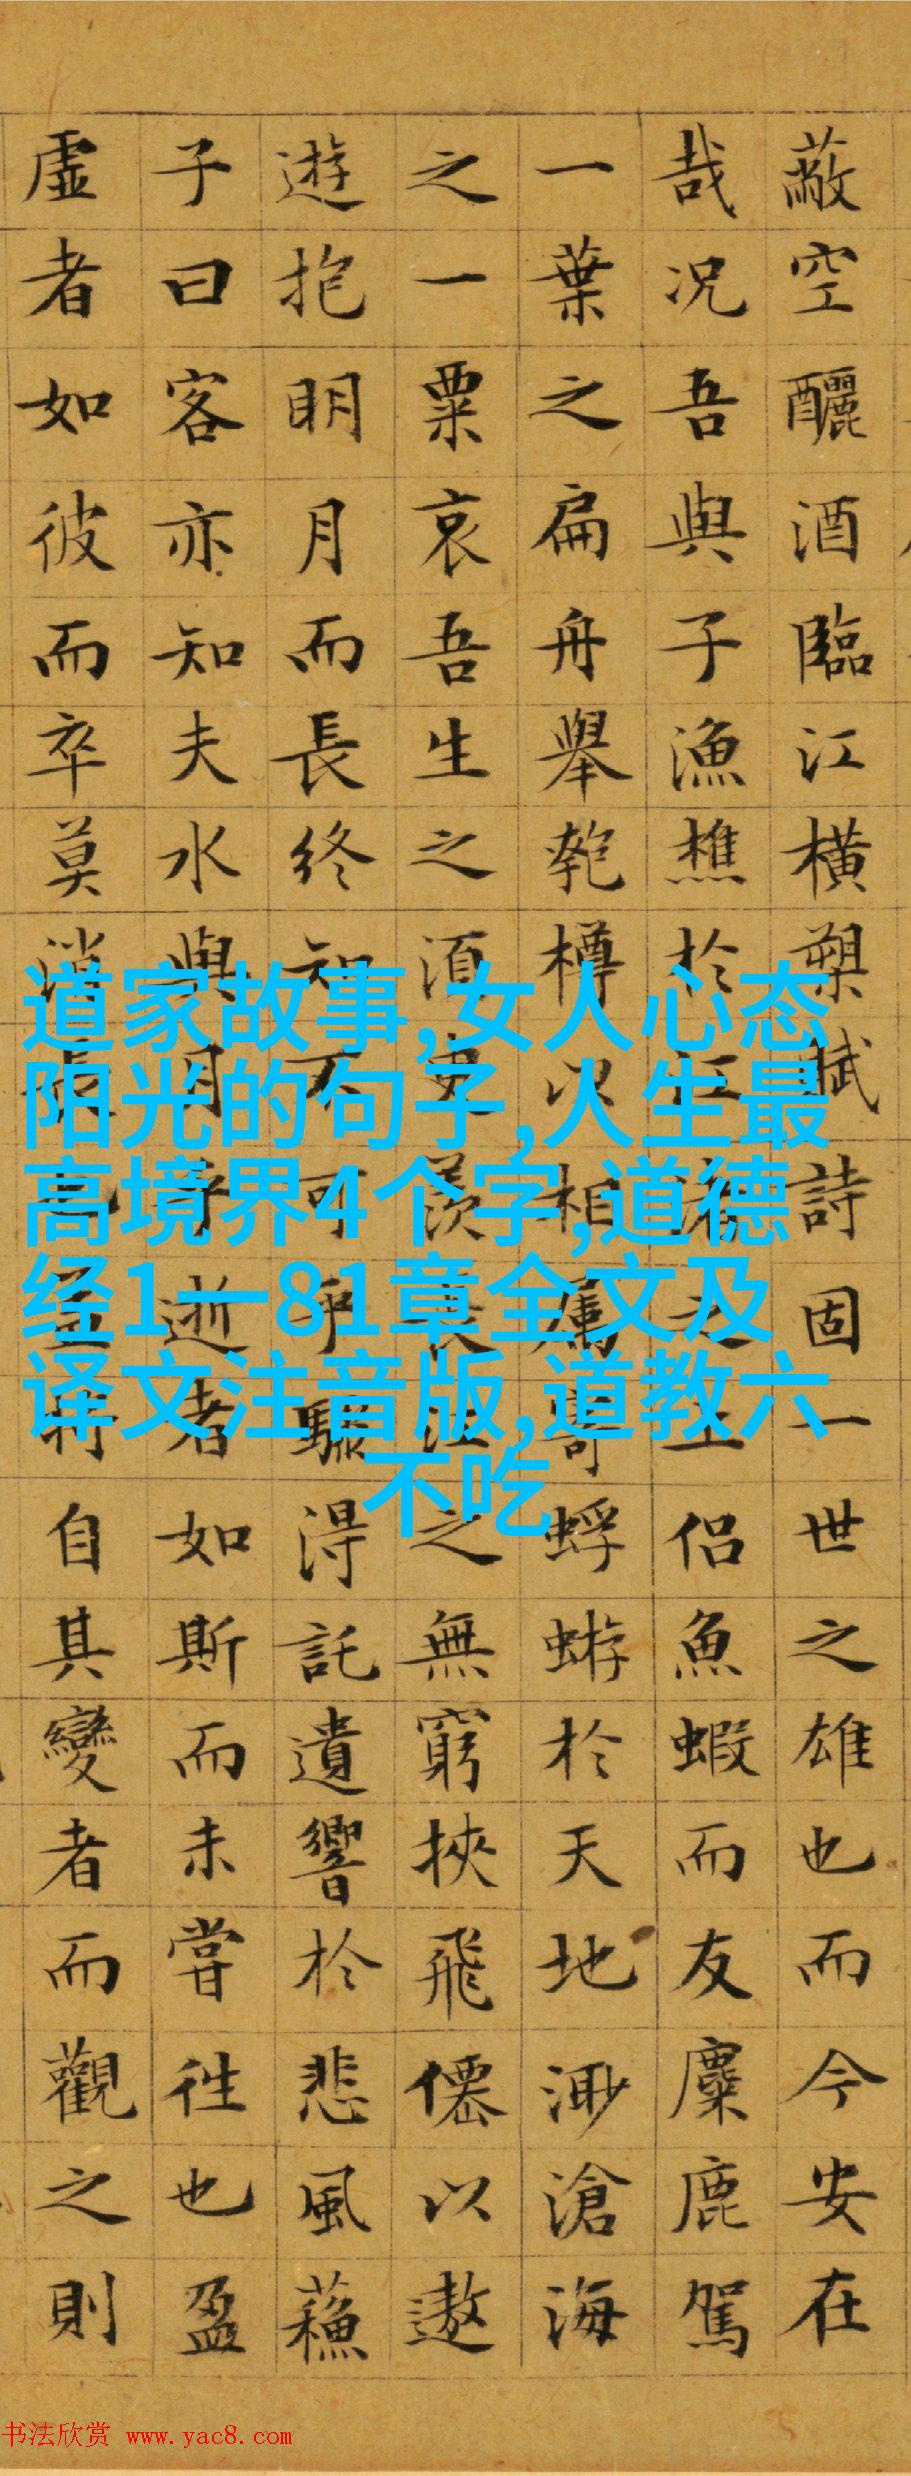 蔽空釃酒臨江橫槊賦詩固一世之雄也而今安在
哉况吾與子漁樵於江渚之上侶魚蝦而友麋鹿駕
一葉之扁舟舉匏樽以相屬寄蜉蝣於天地渺滄海
之一粟哀吾生之須臾羨長江之無窮挾飛僊以遨
遊抱明月而長終知不可乎驟得託遺響於悲風蘇
子曰客亦知夫水與月乎逝者如斯而未嘗往也盈
虛者如彼而卒莫消長也蓋將自其變者而觀之則
道家故事,女人心态
阳光的句子,人生最
高境界4个字,道德
经1一81章全文及
译文注音版,道教六
不吃
书法欣赏 www.yac8.com